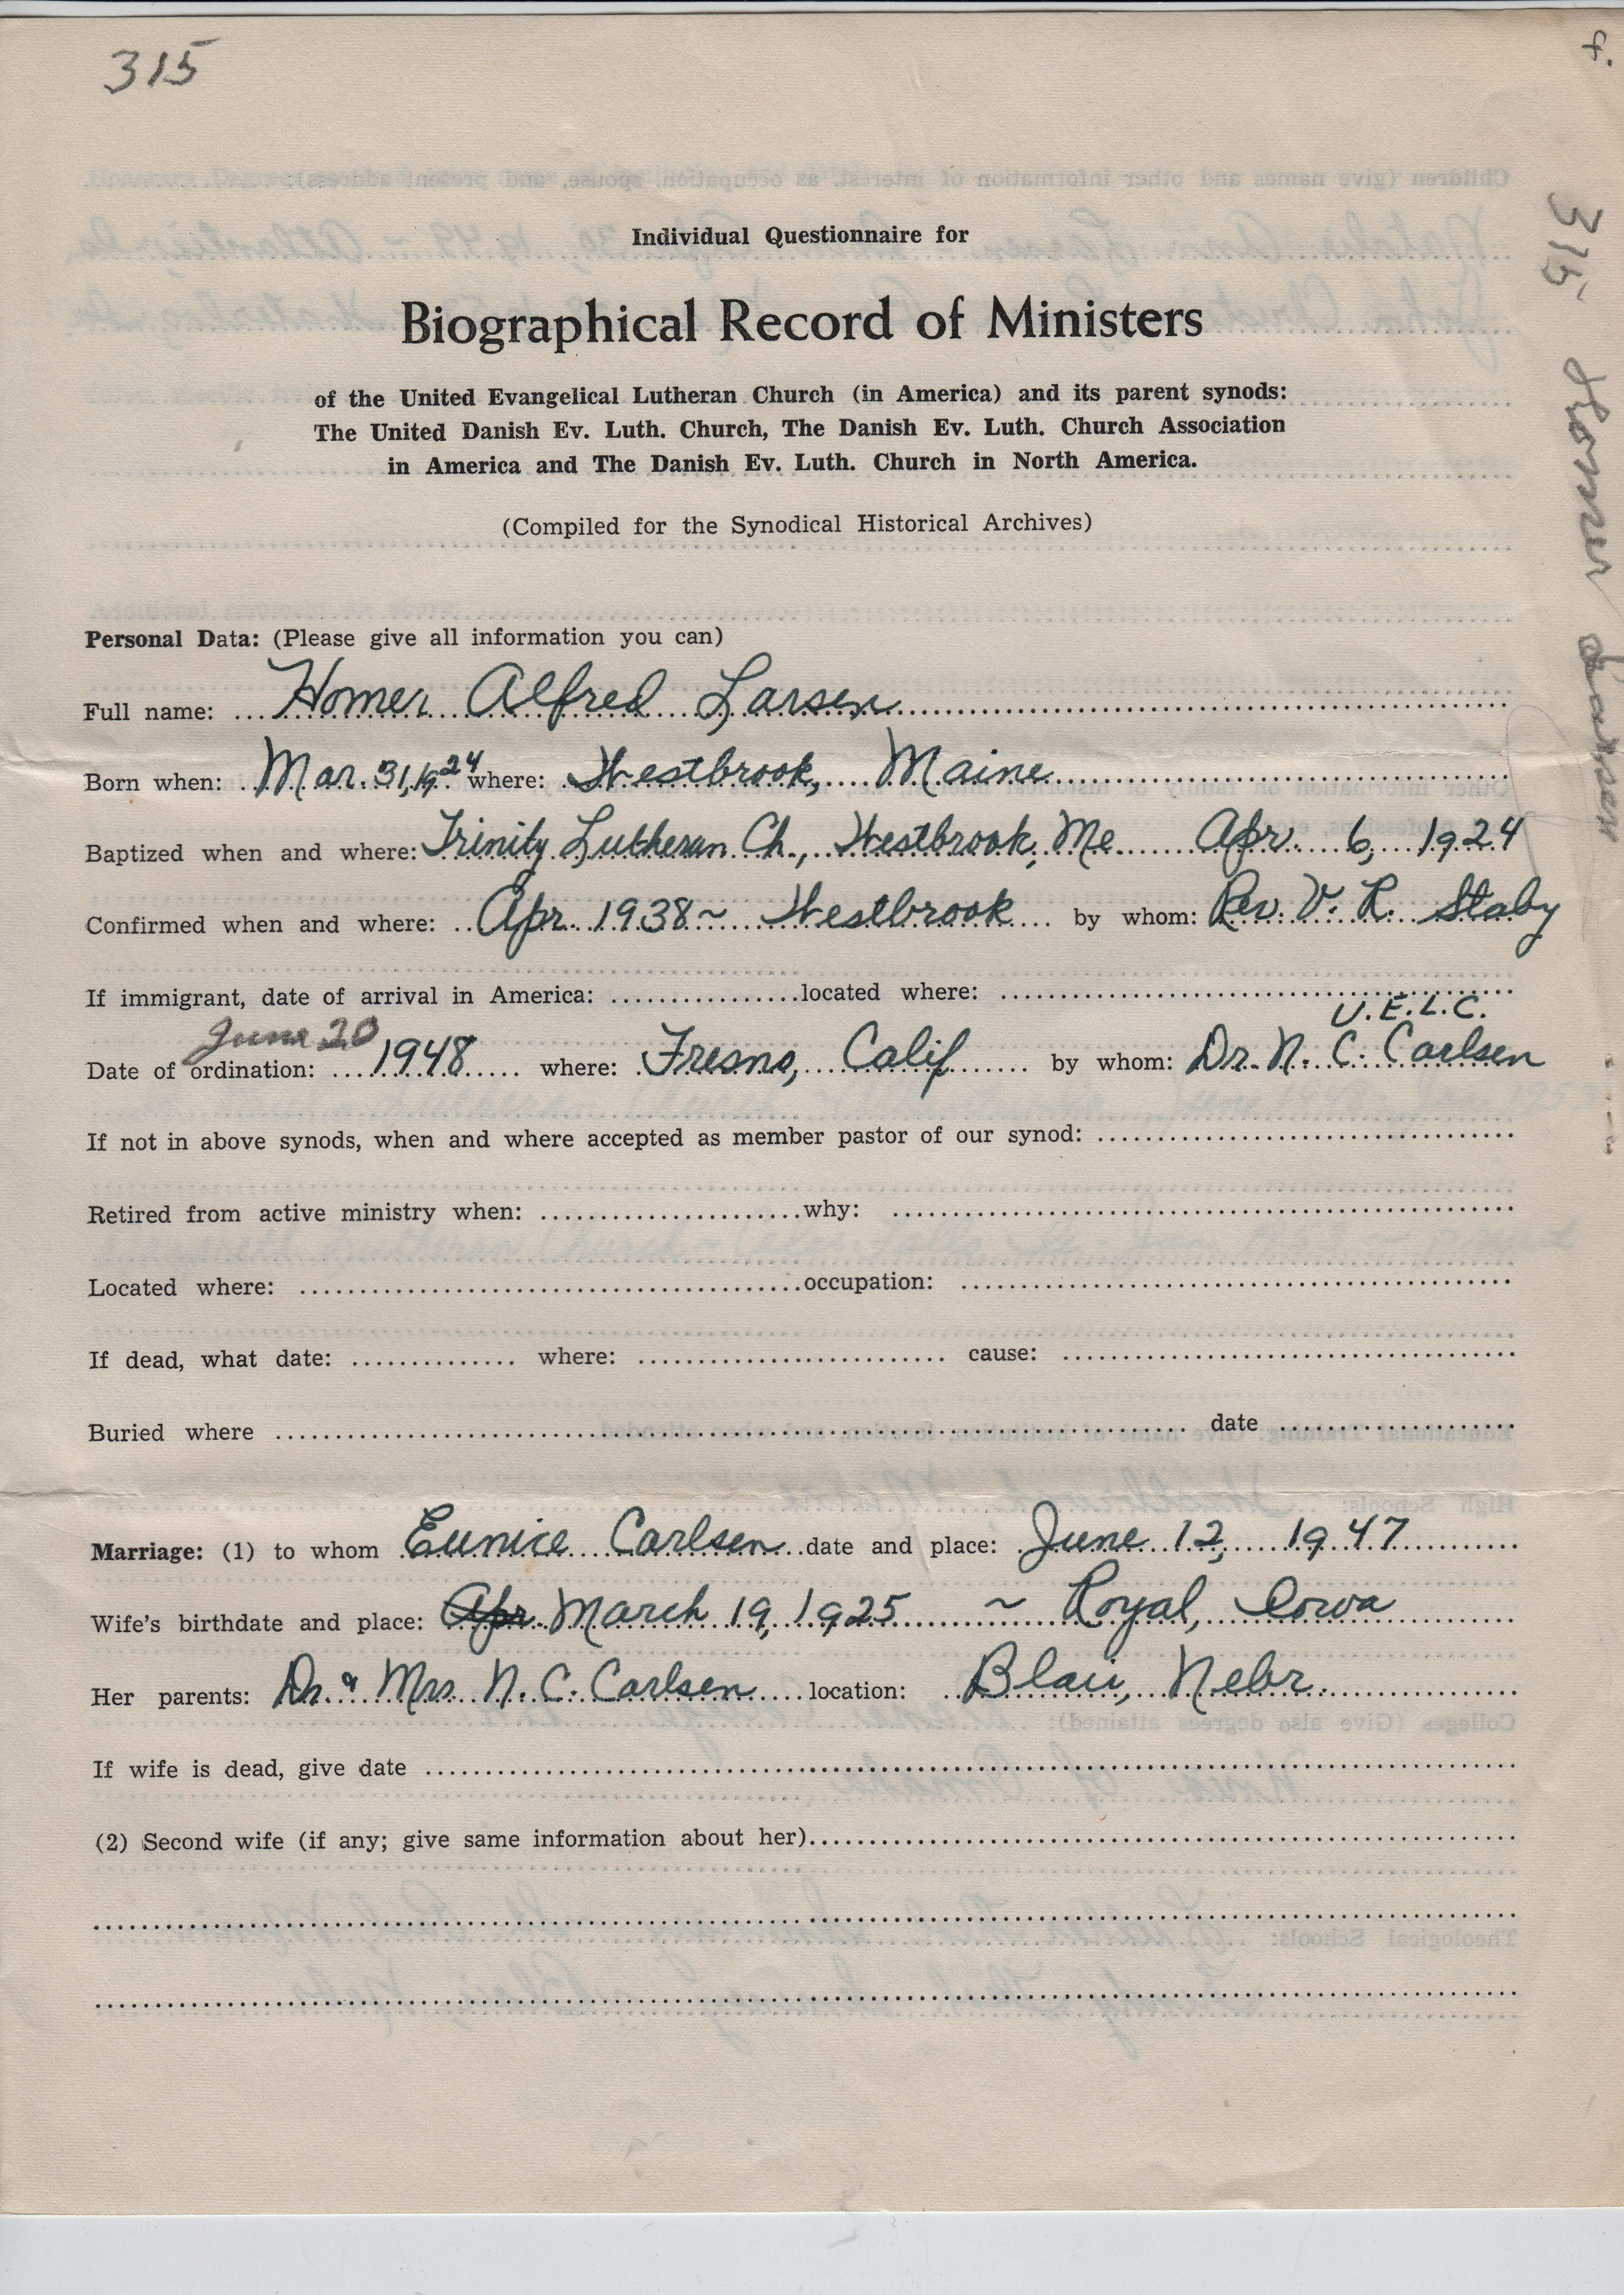 315
Individual Questionnaire for
Biographical Record of Ministers
of the United Evangelical Lutheran Church (in America) and its parent synods:
The United Danish Ev. Luth. Church, The Danish Ev. Luth. Church Association
in America and The Danish Ev. Luth. Church in North America.
(Compiled for the Synodical Historical Archives)
Personal Data: (Please give all information you can)
Full name: Homer Alfred Larsen
Born when: Mar. 31, 1924 where: Westbrook, Maine
Baptized when and where: Trinity Lutheran Ch., Westbrook, Me Apr. 6, 1924
Confirmed when and where: Apr. 1938 ~ Westbrook by whom: Rev. V. R. Staby
If immigrant, date of arrival in America: located where:
U.E.L.C.
June 20
Date of ordination: 1948 where: Fresno, Calif by whom: Dr. N. C. Carlsen
If not in above synods, when and where accepted as member pastor of our synod:
Retired from active ministry when: why:
Located where: occupation:
If dead, what date: where: cause:
Buried where date
Marriage: (1) to whom Eunice Carlsen date and place: June 12, 1947
Wife's birthdate and place: Apr. March 19, 1925 ~ Royal, Iowa
Her parents: Dr. & Mrs. N. C. Carlsen location: Blair, Nebr.
If wife is dead, give date
(2) Second wife (if any; give same information about her)
315 Homer Larsen